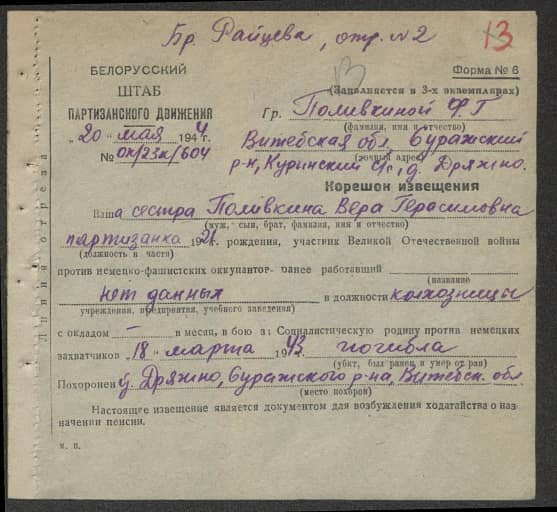 Бр. Райцева, отр. №2
13
БЕЛОРУССКИЙ
ШТАБ
ПАРТИЗАНСКОГО ДВИЖЕНИЯ
„20" мая 1944
№ ОК/23к/604
Форма № 6
(Заполняется в 3-х экземплярах)
Гр. Поливкиной Ф. Г
(фамилия, имя и отчество)
Витебская обл. Суражский
(точный адрес)
р-н, Куринский с/с, д. Дряжно.
Корешок извещения
Ваша сестра Поливкина Вера Герасимовна
(муж, сын, брат, фамилия, имя и отчество)
партизанка 1921г. рождения, участник Великой Отечественной войны
(должность и часть)
против немецко-фашистских оккупантов ранее работавший
(название
нет данных в должности колхозницы
учреждения, предприятия, учебного заведения)
с окладом — в месяц, в бою за Социалистическую родину против немецких
захватчиков „18" марта 1943 погибла
(убит, был ранен и умер от ран)
Похоронен д. Дряжно, Суражского р-на, Витебск. обл
(место похорон)
Настоящее извещение является документом для возбуждения ходатайства о наз-
начении пенсии.
м. п.
Линия отреза